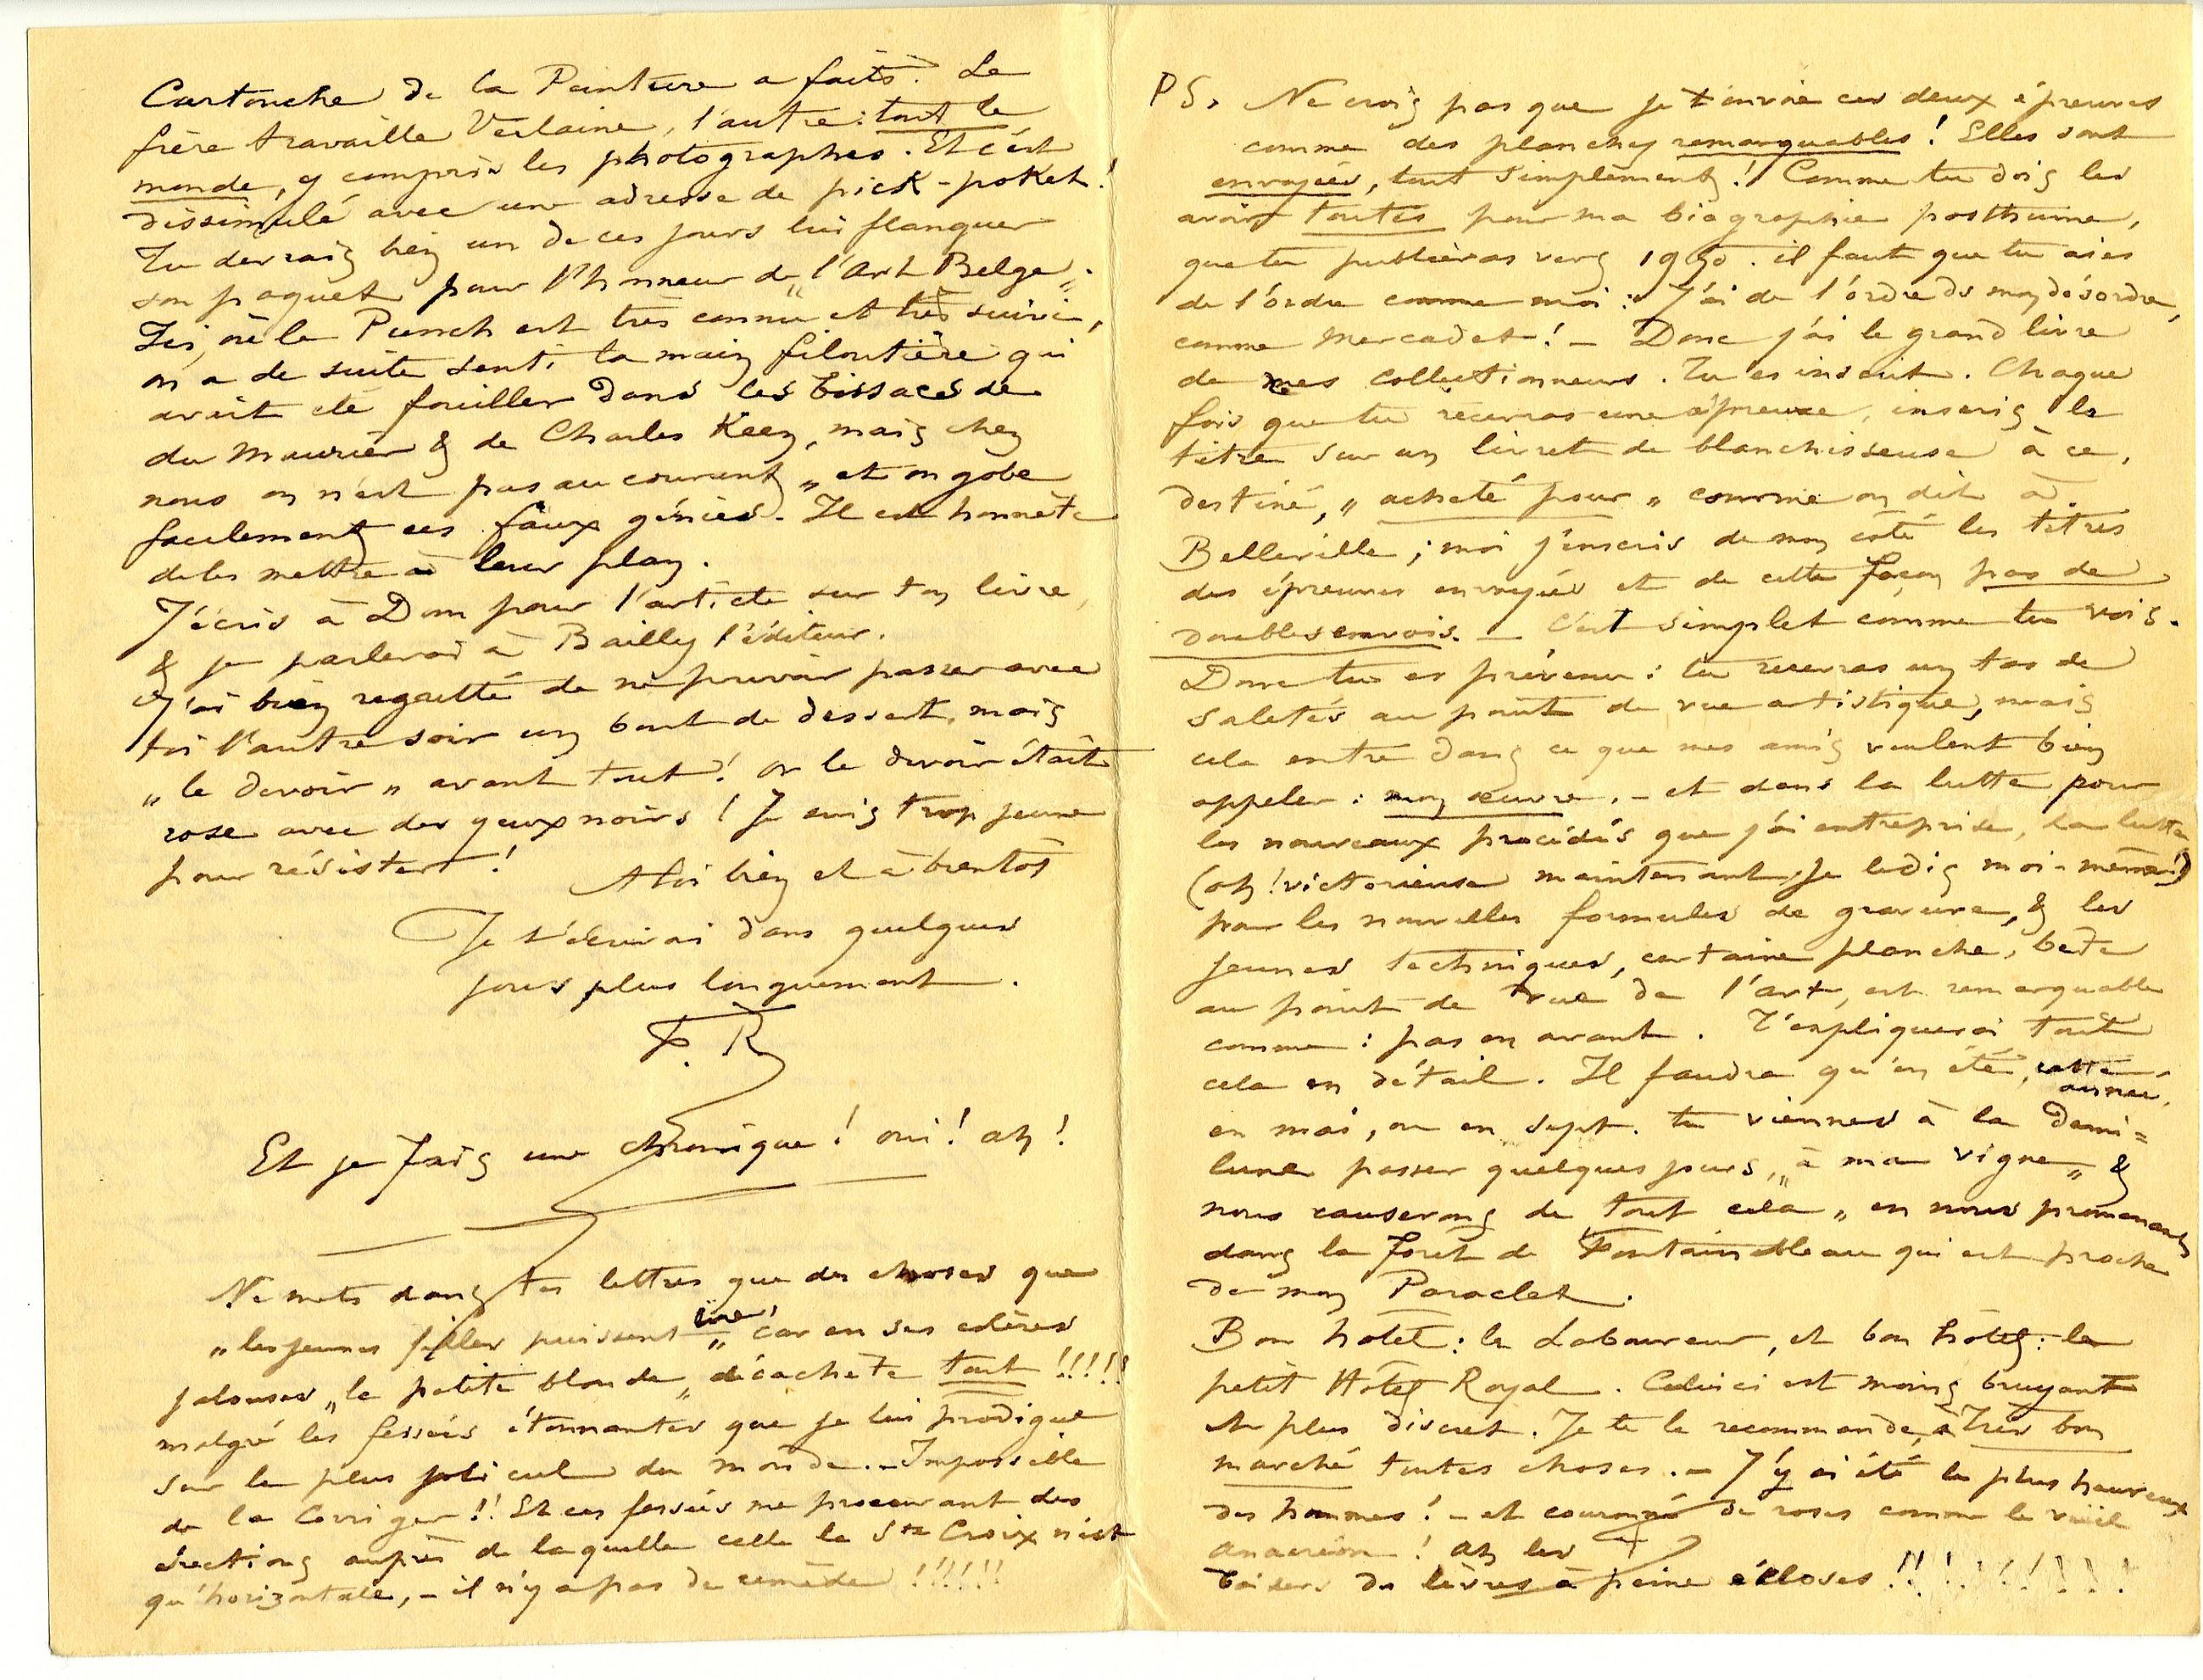 Cartouche de la Peinture a faits. Le
frère travaille Verlaine, l'autre : tout le
monde, y compris les photographes. Et c'est
dissimulé avec une adresse de pick-poket !
Tu devrais bien un de ces jours lui flanquer
son paquet pour l'honneur de „l'Art Belge„.
Ici, où le Punch est très connu et très suivi,
on a de suite senti la main filoutière qui
avait été fouiller dans les bissacs de
du Maurier & de Charles Keen, mais chez
nous on n'est pas au courant, et on gobe
facilement ces faux génies. Il est honnête
de les mettre à leur plan.
J'écris à Dom pour l'article sur ton livre,
& je parlerai à Bailly l'éditeur.
J'ai bien regretté de ne pouvoir passer avec
toi l'autre soir un bout de dessert, mais
„le devoir„ avant tout ! or le devoir était
rose avec des yeux noirs ! Je suis trop jeune
pour résister !
A toi bien et à bientôt
Je t'écrirai dans quelques
jours plus longuement.
F. R
Et je fais une chronique ! oui ! ah !
Ne mets dans tes lettres que des choses que
„les jeunes filles puissent lire„ car en ses colères
jalouses „la petite blonde„ décachète tout !!!!!
malgré les fessées étonnantes que je lui prodigue
sur le plus joli cul du monde. _ Impossible
de la corriger !! Et ces fessées me procurant des
érections auprès de laquelle celle la Ste Croix n'est
qu'horizontale, _ il n'y a pas de remède !!!!!!
PS. Ne crois pas que je t'envoie ces deux épreuves
comme des planches remarquables ! Elles sont
envoyées, tout simplement ! Comme tu dois les
avoir toutes pour ma biographie posthume,
que tu publieras vers 1950. il faut que tu aies
de l'ordre comme moi : J'ai de l'ordre ds mon désordre,
comme Mercadet ! _ Donc j'ai le grand livre
de mes collectionneurs. Tu es inscrit. Chaque
fois que tu recevras une épreuve, inscris le
titre sur un livret de blanchisseuse à ce,
destiné, „acheté pour„ comme on dit à
Belleville ; moi j'inscris de mon côté les titres
des épreuves envoyées et de cette façon pas de
doubles envois. _ C'est simplet comme tu vois.
Donc tu es prévenu : tu recevras un tas de
saletés au point de vue artistique, mais
cela entre dans ce que mes amis veulent bien
appeler : mon œuvre. _ et dans la lutte pour
les nouveaux procédés que j'ai entreprise, la lutte
(oh ! victorieuse maintenant, je le dis moi-même !)
pour les nouvelles formules de gravure, & les
jeunes techniques, certaine planche, bête
au point de vue de l'art, est remarquable
comme : pas en avant. T'expliquerai tout
cela en détail. Il faudra qu'en été, cette année,
en mai, ou en sept. tu viennes à la Demi=
lune passer quelques jours, „à ma vigne„ &
nous causerons de tout cela „en nous promenant
dans la forêt de Fontainebleau qui est proche
de mon Paraclet.
Bon hotel : le Laboureur, et bon hôtel : le
petit Hôtel Royal. Celui ci est moins bruyant
et plus discret. Je te le recommande, à très bon
marché toutes choses. _ J'y ai été le plus heureux
des hommes ! _ et couronné de roses comme le vieil
anacréon ! ah les
baisers de lèvres à peine écloses !!!!!!!!